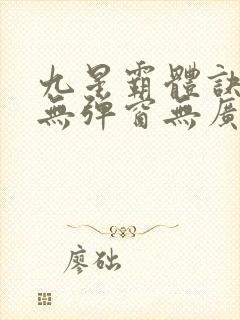 九星霸體訣
無彈窗無廣
廖础